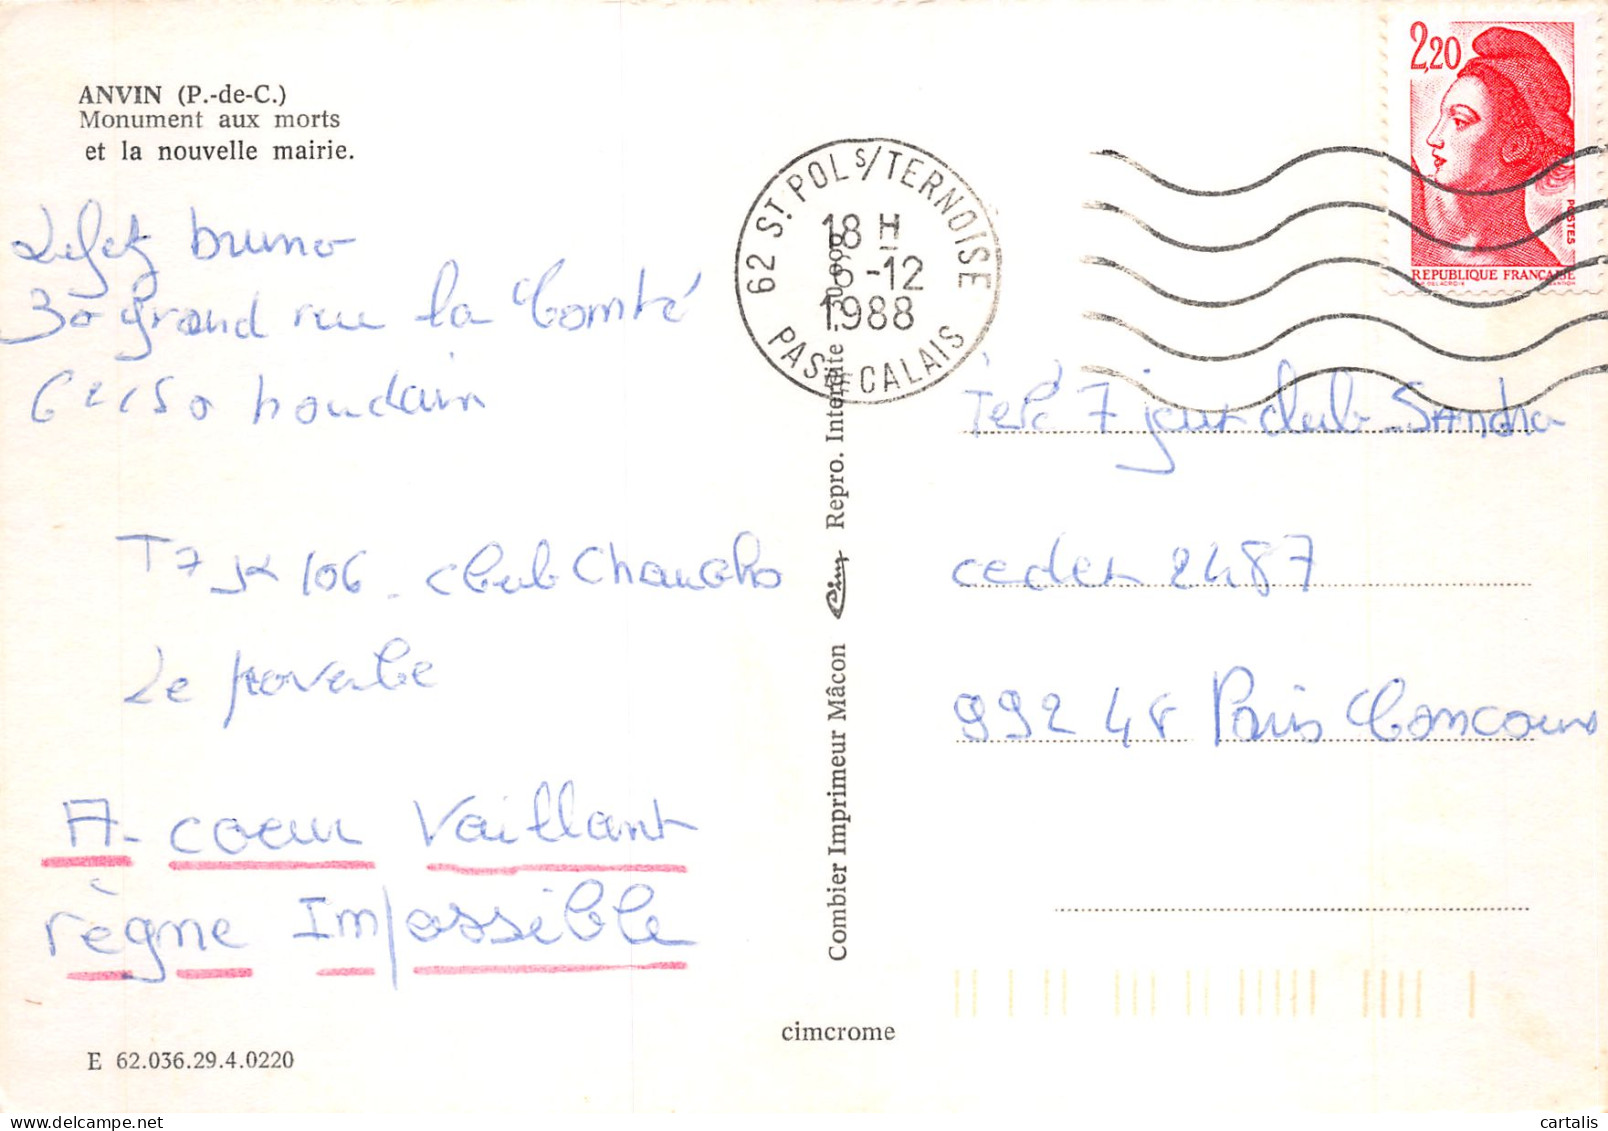 ANVIN (P.-de-C.)
Monument aux morts
et la nouvelle mairie.
bruno
30 grand rue la Comté
62150 houdain
T7 JX 106 - club Chanchs
Le proverbe
A - coeur Vaillant
règne Impossible
E 62.036.29.4.0220
cimcrome
Combier Imprimeur Mâcon Cim Repro. Interdite
62 ST. POL S/TERNOISE
18 H
-12
1988
PAS CALAIS
2,20
POSTES
REPUBLIQUE FRANCAISE
7 jour club - SANdra
cedex 2487
992 48 Paris Concours
cartalis